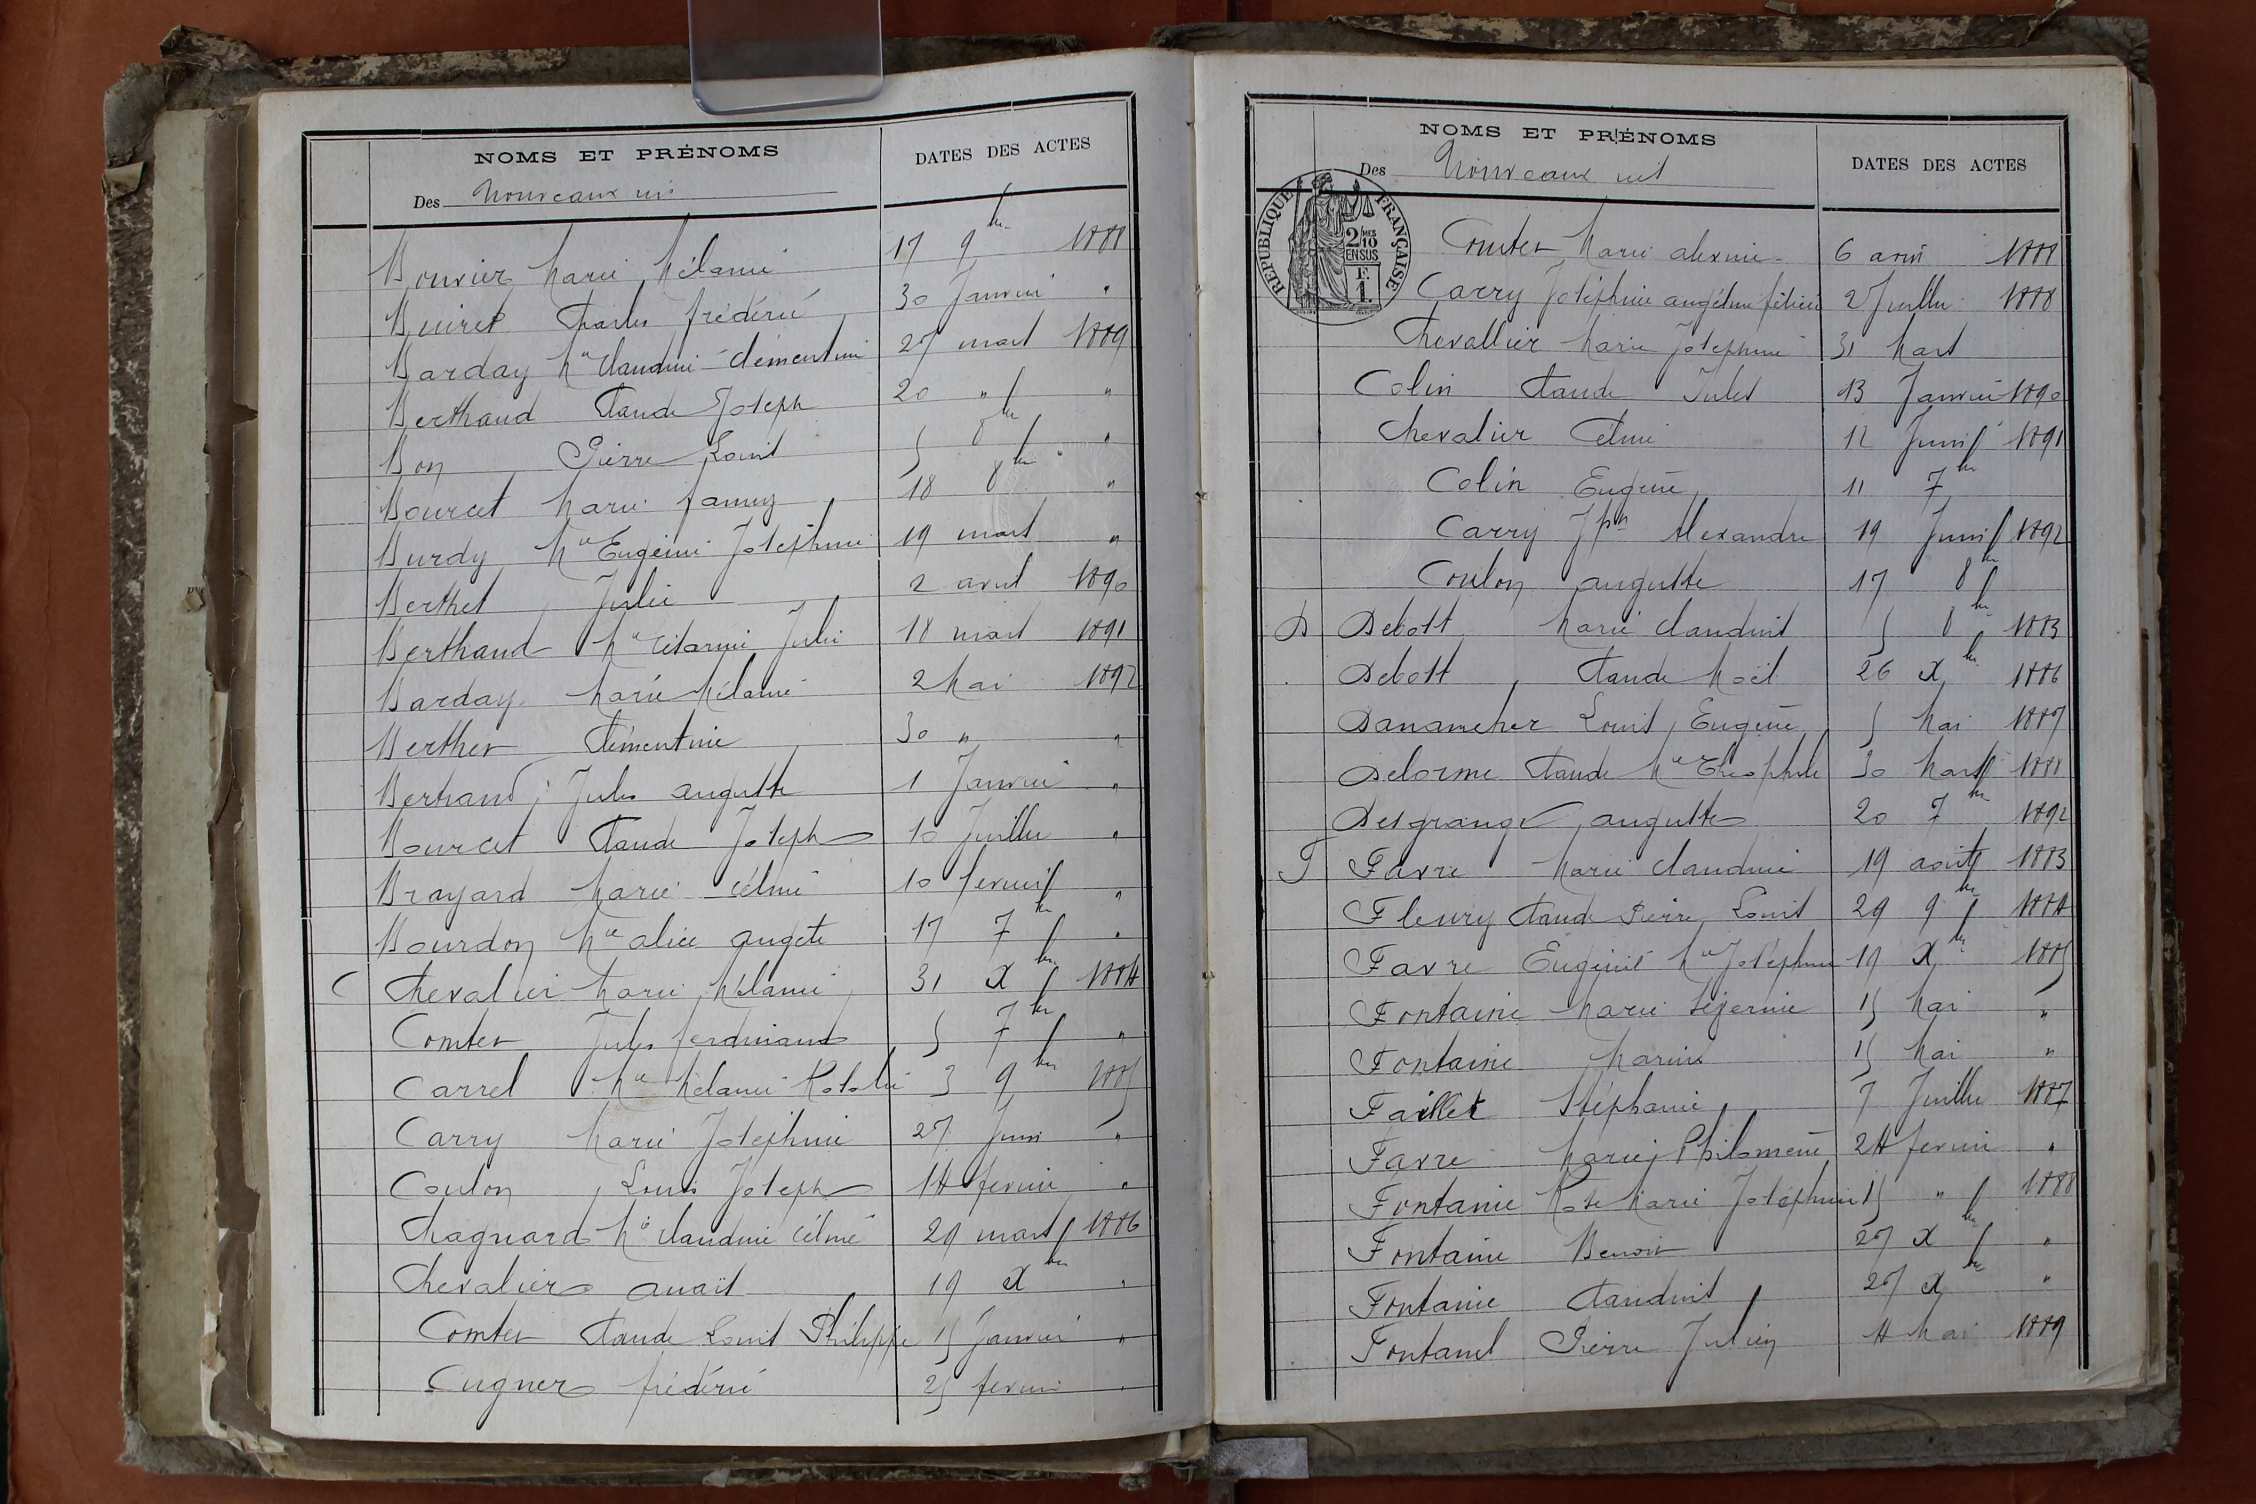 NOMS ET PRÉNOMS
DATES DES ACTES
Des Nouveaux nés
Bouvier Marie Mélanie 17 9bre 1888
Buiret Charles frédéric 30 Janvier "
Barday Mie Claudine Clémentine 27 mars 1889
Berthaud Claude Joseph 20 " "
Bon Pierre Louis 5 8bre "
Bourcet Marie fanny 18 8bre "
Burdy Mie Eugénie Joséphine 19 mars "
Berthet Julie 2 avril 1890
Berthaud Mie Julie 18 mars 1891
Barday Marie Mélanie 2 Mai 1892
Berthet Clémentine 30 " "
Bertrand Jules auguste 1 Janvier "
Bourcet Claude Joseph 10 Juillet "
Brayard Marie Céline 10 fevrier "
Bourdon Mie alice 17 7bre "
C Chevalier Marie Mélanie 31 Xbre 1884
Comtet Jules ferdinand 5 7bre "
Carrel Mie Mélanie Rosalie 3 9bre 1885
Carry Marie Joséphine 27 Juin "
Coulon Louis Joseph 14 fevrier "
Chagnard Mie Claudine Céline 29 mars 1886
Chevalier anaïs 19 Xbre "
Comtet Claude Louis Philippe 15 Janvier "
Cugnet frédéric 25 fevrier "
NOMS ET PRÉNOMS
DATES DES ACTES
Des Nouveaux nés
REPUBLIQUE FRANÇAISE
2/10 MES
EN SUS
F. 1.
Comtet Marie alexine 6 avril 1888
Carry Joséphine angéline félicie 2 Juillet 1888
Chevallier Marie Josephine 31 Mars
Colin Claude Jules 13 Janvier 1890
Chevalier Céline 12 Juin 1891
Colin Eugène 11 7bre
Carry Jph Alexandre 19 Juin 1892
Coulon auguste 17 8bre
D Debost Marie Claudius 5 8bre 1883
Debost Claude Noël 26 Xbre 1886
Danancher Louis Eugène 5 Mai 1887
Delorme Claude Mie Théophile 30 Mars 1888
Desgrange auguste 20 7bre 1892
F Favre Marie Claudine 19 août 1883
Fleury Claude Pierre Louis 29 9bre 1884
Favre Eugénie Mie Joséphine 19 Xbre 1885
Fontaine Marie 15 Mai "
Fontaine Marius 15 Mai "
Faillet Stéphanie 7 Juillet 1887
Favre Marie Philomène 24 fevrier "
Fontaine Rose Marie Joséphine 15 " 1888
Fontaine Benoit 27 Xbre "
Fontaine Claudius 27 Xbre "
Fontanel Pierre Julien 4 Mai 1889